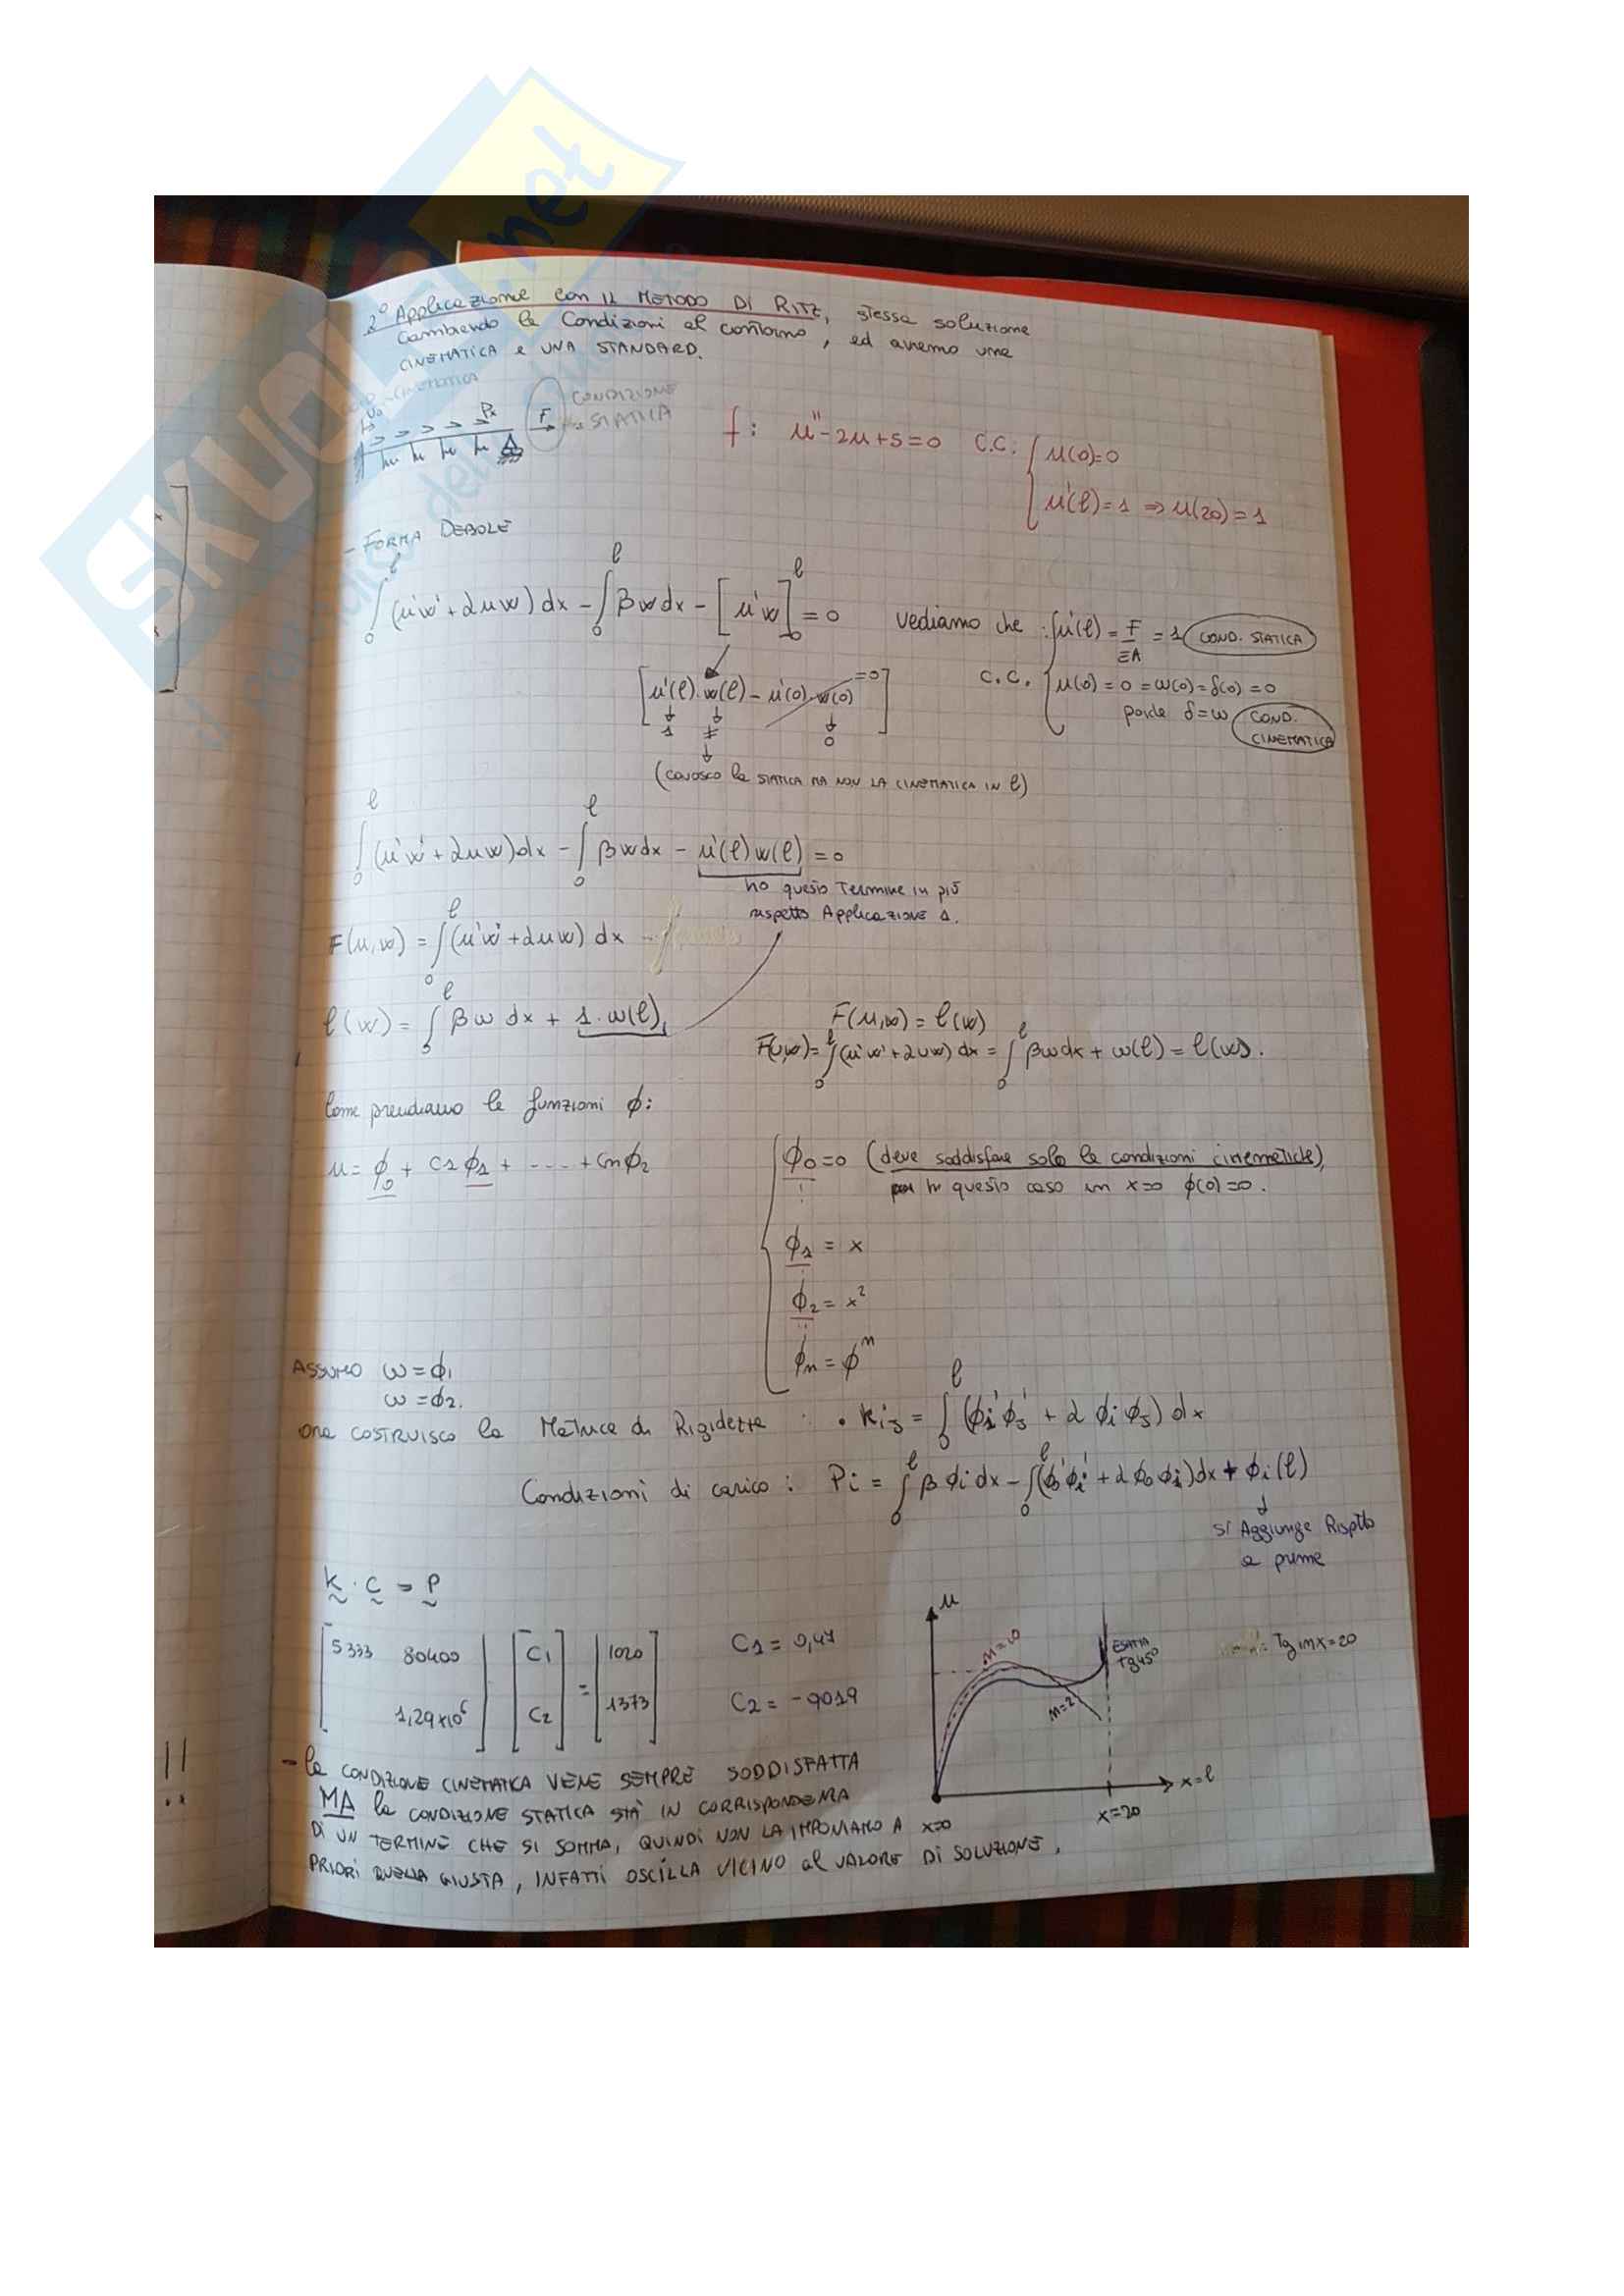 2° Applicazione con il METODO DI RITZ, stessa soluzione
Cambiando le Condizioni al contorno, ed avremo una
CINEMATICA e UNA STANDARD.
CINEMATICA
u0
Px
F
CONDIZIONE
STATICA
f: u'' - 2u + 5 = 0 C.C. { u(0) = 0
u'(l) = 1 ⇒ u(20) = 1
- FORMA DEBOLE
∫₀ˡ (u'w' + 2uw) dx - ∫₀ˡ βw dx - [u'w]₀ˡ = 0
vediamo che : u'(l) = F/EA = 1 COND. STATICA
[u'(l)·w(l) - u'(0)·w(0)] =0
1 ≠ 0
C.C. u(0) = 0 = w(0) = δ(0) = 0
δ = w COND.
CINEMATICA
(conosco la STATICA MA NON LA CINEMATICA IN l)
∫₀ˡ (u'w' + 2uw) dx - ∫₀ˡ βw dx - u'(l) w(l) = 0
ho questo Termine in più
rispetto Applicazione 1.
F(u,w) = ∫₀ˡ (u'w' + 2uw) dx
l(w) = ∫₀ˡ βw dx + 1·w(l)
F(u,w) = l(w)
F(u,w) = ∫₀ˡ (u'w' + 2uw) dx = ∫₀ˡ βw dx + w(l) = l(w).
Come prendiamo le funzioni ϕ:
u = ϕ0 + C1ϕ1 + ---- + Cnϕ2
ϕ0 = 0 (deve soddisfare solo le condizioni cinematiche)
in questo caso in x=0 ϕ(0)=0.
ϕ1 = x
ϕ2 = x²
ϕn = ϕⁿ
ASSUMO w = ϕ1
w = ϕ2.
ora COSTRUISCO la Matrice di Rigidezza : • Kij = ∫₀ˡ (ϕi'ϕj' + 2ϕiϕj) dx
Condizioni di carico : Pi = ∫₀ˡ βϕi dx - ∫₀ˡ (ϕ0'ϕi' + 2ϕ0ϕi) dx + ϕi(l)
si Aggiunge Rispetto
a prima
K · C = P
[5333 80400
1,29×10⁶] [C1
C2] = [1020
1373]
C1 = 0,47
C2 = -9019
u
m=10
ESATTA
Tg45°
m=2
Tg in x=20
x=l
x=20
x=0
- la CONDIZIONE CINEMATICA VIENE SEMPRE SODDISFATTA
MA la CONDIZIONE STATICA STÀ IN CORRISPONDENZA
DI UN TERMINE CHE SI SOMMA, QUINDI NON LA IMPONIAMO A
PRIORI QUELLA GIUSTA, INFATTI OSCILLA VICINO al VALORE DI SOLUZIONE.
SKUOLA.net